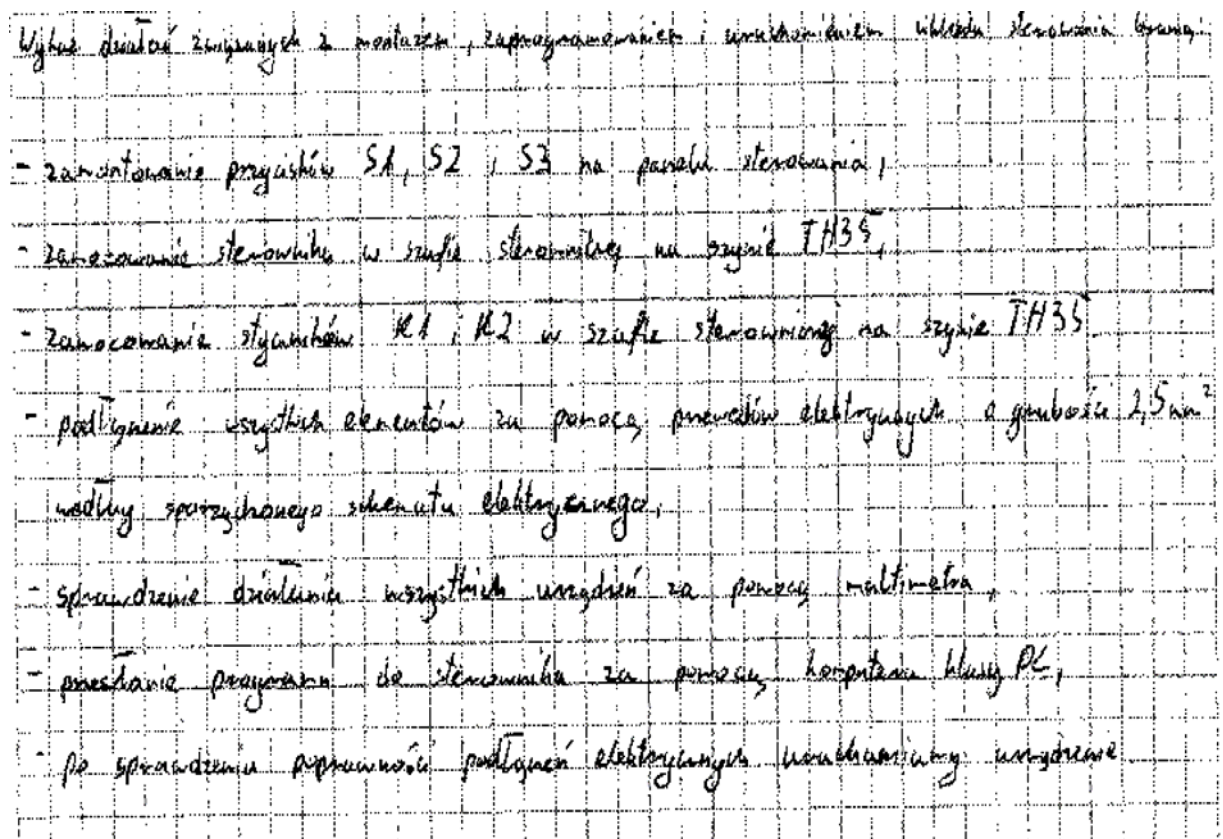 Wykaz działań związanych z montażem, zaprogramowaniem i uruchomieniem układu sterowania bramą:
- zamontowanie przycisków S1, S2 i S3 na panelu sterowania,
- zamocowanie sterownika w szafie sterowniczej na szynie TH35,
- zamocowanie styczników K1 i K2 w szafie sterowniczej na szynie TH35.
- podłączenie wszystkich elementów za pomocą przewodów elektrycznych o grubości 2,5 mm²
według sporządzonego schematu elektrycznego,
- sprawdzenie działania wszystkich urządzeń za pomocą multimetra,
- przesłanie programu do sterownika za pomocą komputera klasy PC,
- po sprawdzeniu poprawności podłączeń elektrycznych uruchamiamy urządzenie